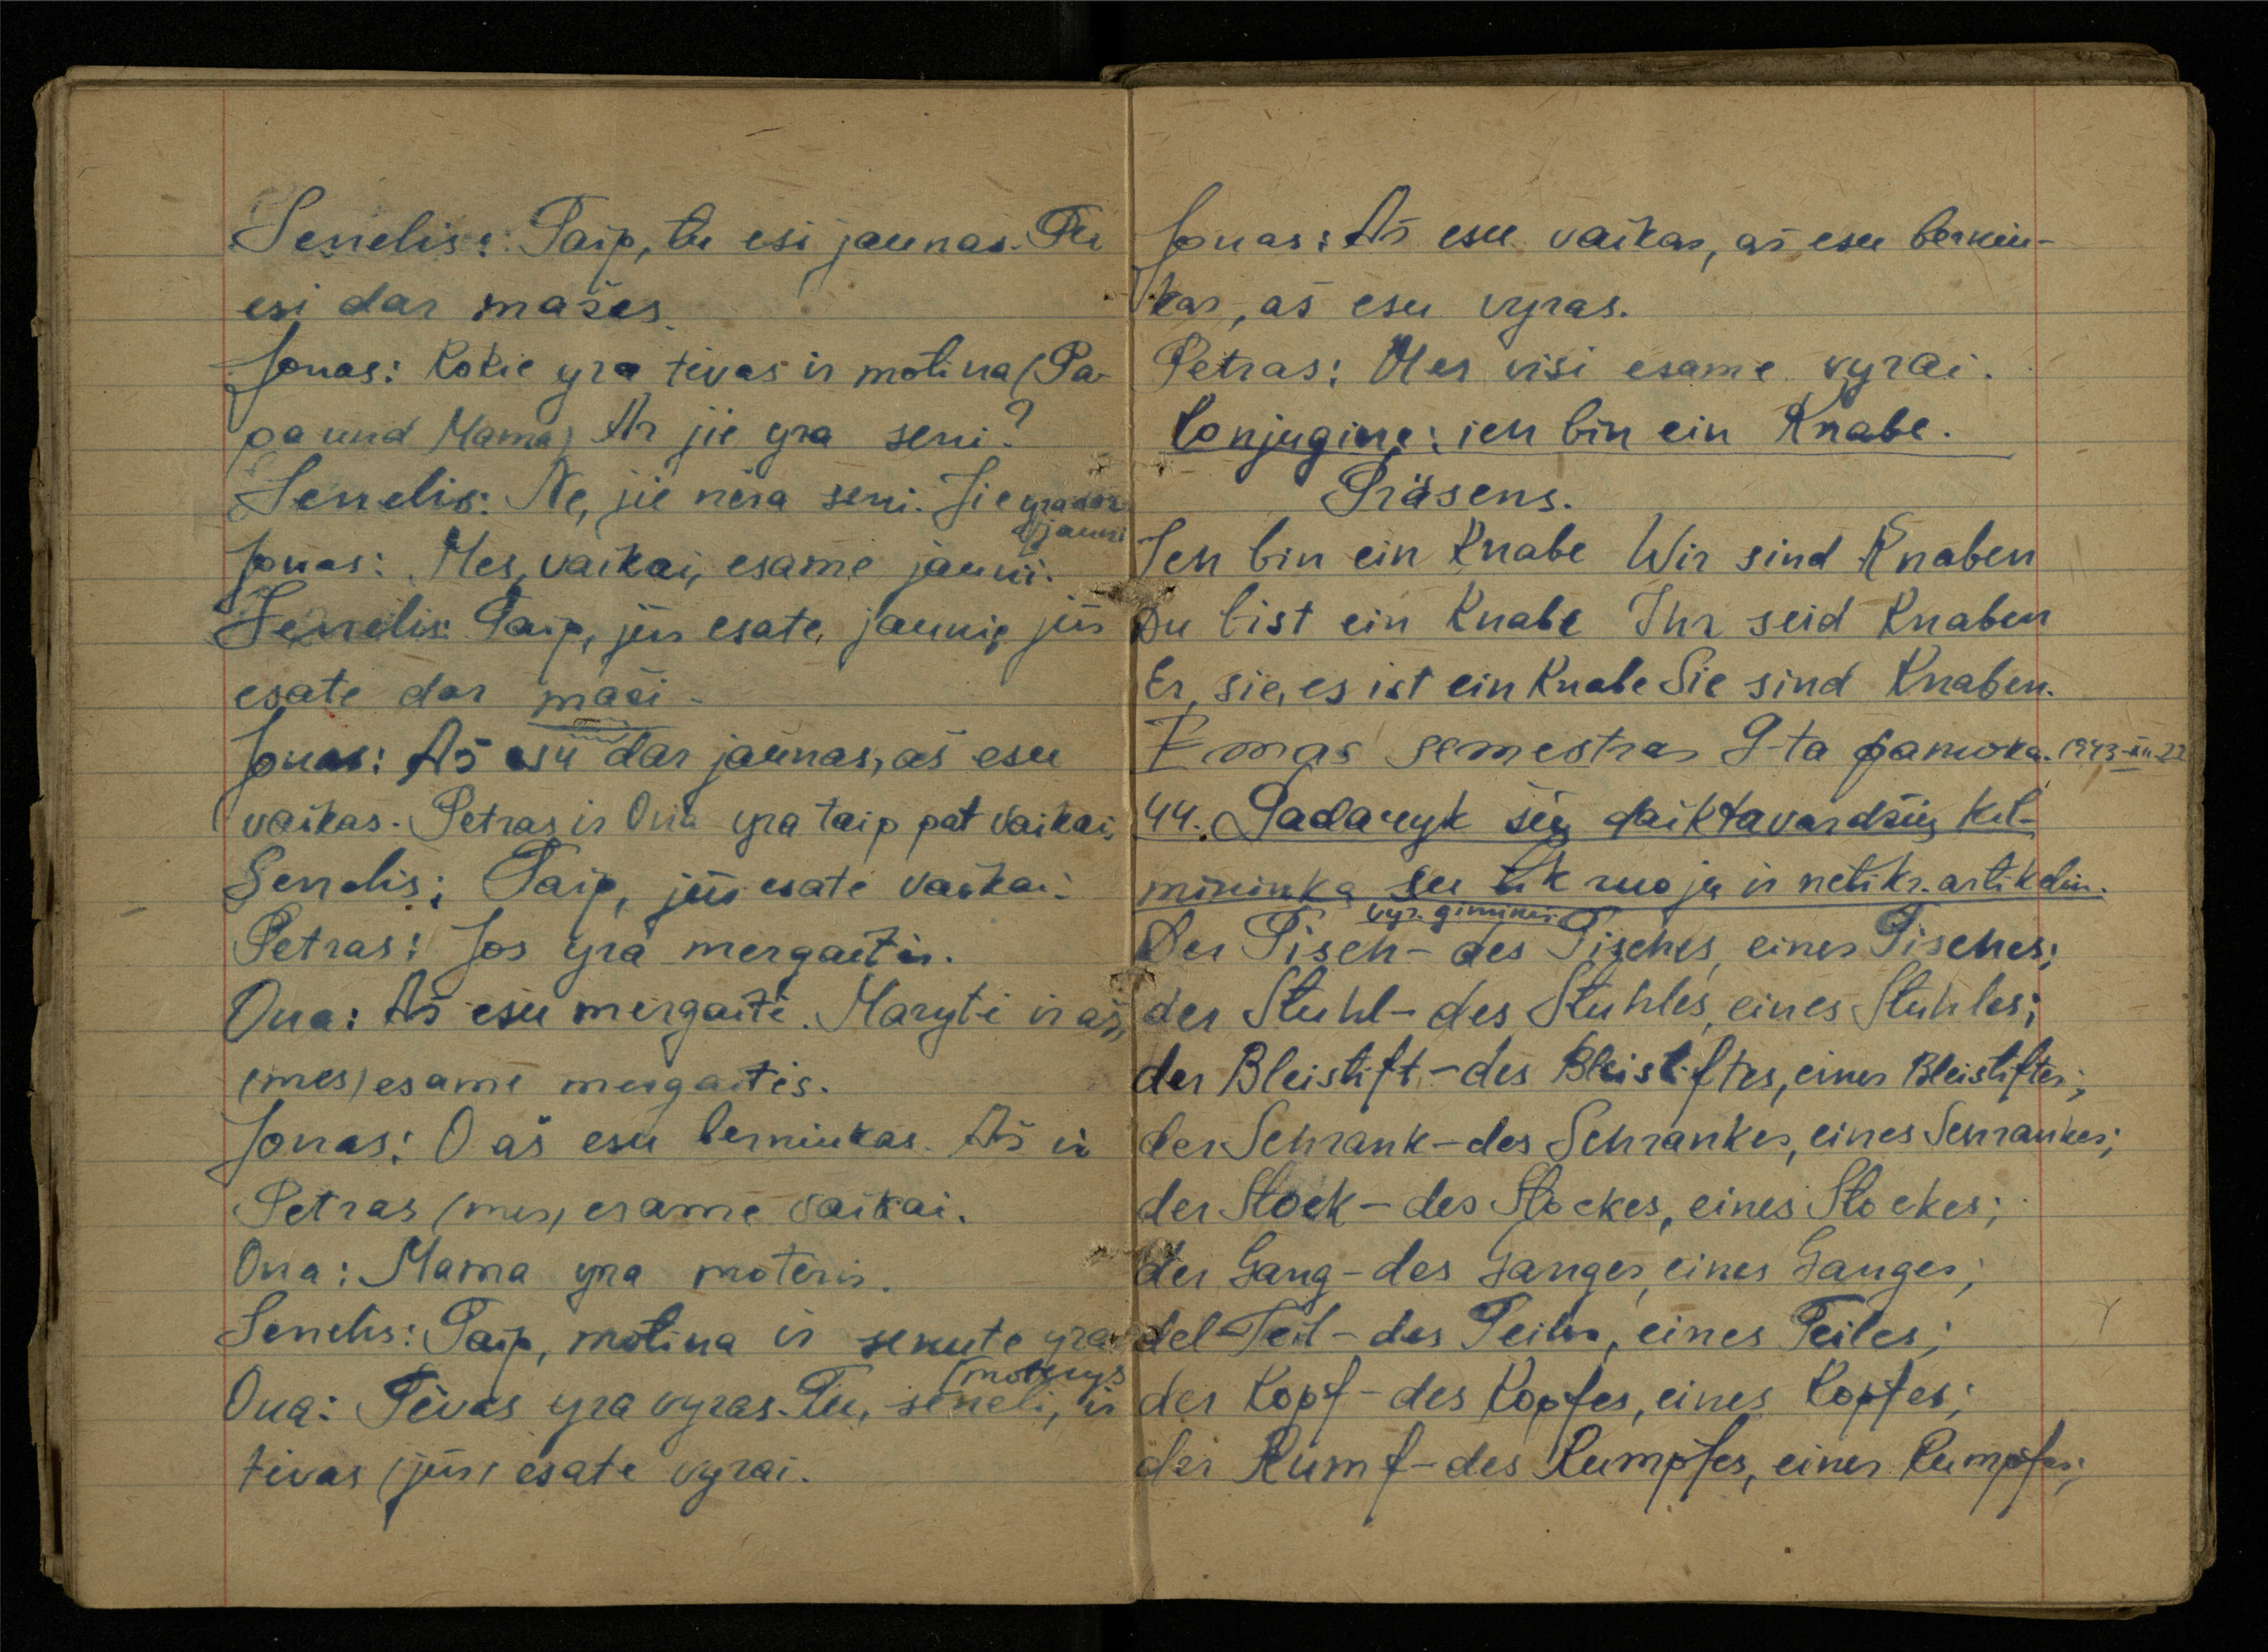 Senelis: Taip, tu esi jaunas. Tu
esi dar mažas.
Jonas: Kokie yra tėvas ir motina (Pa-
pa und Mama) Ar jie yra seni?
Senelis: Ne, jie nėra seni. Jie yra dar
jauni
Jonas: Mes, vaikai, esame jauni.
Senelis: Taip, jūs esate jauni, jūs
esate dar maži.
Jonas: Aš esu dar jaunas, aš esu
vaikas. Petras ir Ona yra taip pat vaikai.
Senelis: Taip, jūs esate vaikai.
Petras: Jos yra mergaitės.
Ona: Aš esu mergaitė. Marytė ir aš,
(mes) esame mergaitės.
Jonas: O aš esu berniukas. Aš ir
Petras (mes) esame vaikai.
Ona: Mama yra moteris.
Senelis: Taip, motina ir senutė yra
(moterys
Ona: Tėvas yra vyras. Tu, seneli, ir
tėvas (jūs) esate vyrai.
Jonas: Aš esu vaikas, aš esu berniu-
kas, aš esu vyras.
Petras: Mes visi esame vyrai.
Konjugire: ich bin ein Knabe.
Präsens.
Ich bin ein Knabe Wir sind Knaben
Du bist ein Knabe Ihr seid Knaben
Er, sie, es ist ein Knabe Sie sind Knaben.
I-mas semestras 9-ta pamoka. 1943-XII-22
44. Padaryk šių daiktavardžių kil-
mininką su tikruoju ir netikr. artikeliu.
vyr. giminės
Der Tisch - des Tisches, eines Tisches;
der Stuhl - des Stuhles, eines Stuhles;
der Bleistift - des Bleistiftes, eines Bleistiftes;
der Schrank - des Schrankes, eines Schrankes;
der Stock - des Stockes, eines Stockes;
der Gang - des Ganges, eines Ganges;
del Teil - des Teiles, eines Teiles;
der Kopf - des Kopfes, eines Kopfes;
der Rumf - des Rumpfes, eines Rumpfes;